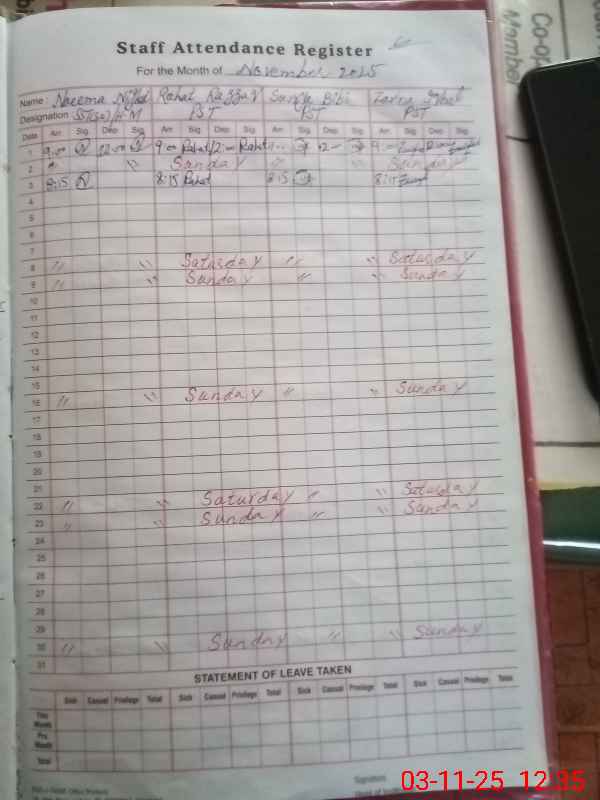 Co-op
Member
Staff Attendance Register
For the Month of November 2025
Name : Naeema Rahat Razzaq Bibi
Designation SST(Sc)/H.M PST PST PST
Date Arr Sig Dep Sig Arr Sig Dep Sig Arr Sig Dep Sig Arr Sig Dep Sig
1 9:00 12:00 9 Rahat 12 Rahat
2 " " Sunday " " Sunday
3 8:15 8:15 Rahat 8:15 8:15
4
5
6
7
8 " " Saturday " " Saturday
9 " " Sunday " " Sunday
10
11
12
13
14
15
16 " " Sunday " " Sunday
17
18
19
20
21
22 " " Saturday " " Saturday
23 " " Sunday " " Sunday
24
25
26
27
28
29
30 " " Sunday " " Sunday
31
STATEMENT OF LEAVE TAKEN
Sick Casual Privilege Total Sick Casual Privilege Total Sick Casual Privilege Total Sick Casual Privilege Total
This Month
Pre Month
Total
Signature
03-11-25 12:35